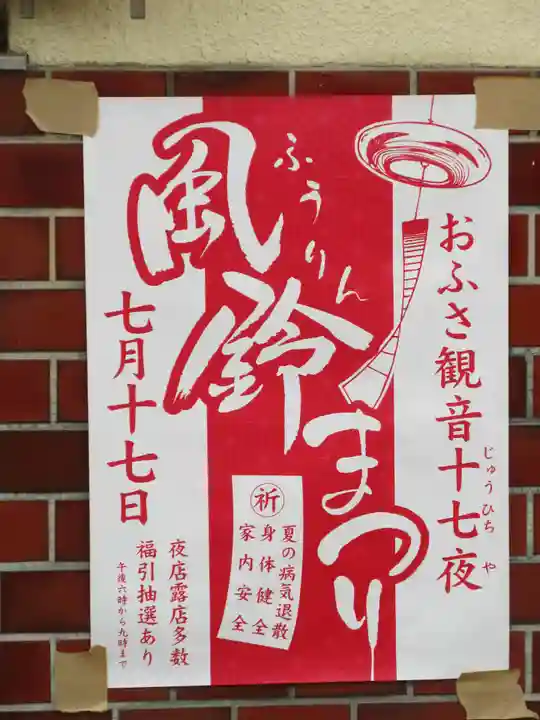 おふさ観音十七夜
じゅうひちや
風鈴まつり
ふうりん
七月十七日
㊗祈
夏の病気退散
身体健全
家内安全
夜店露店多数
福引抽選あり
午後六時から九時まで